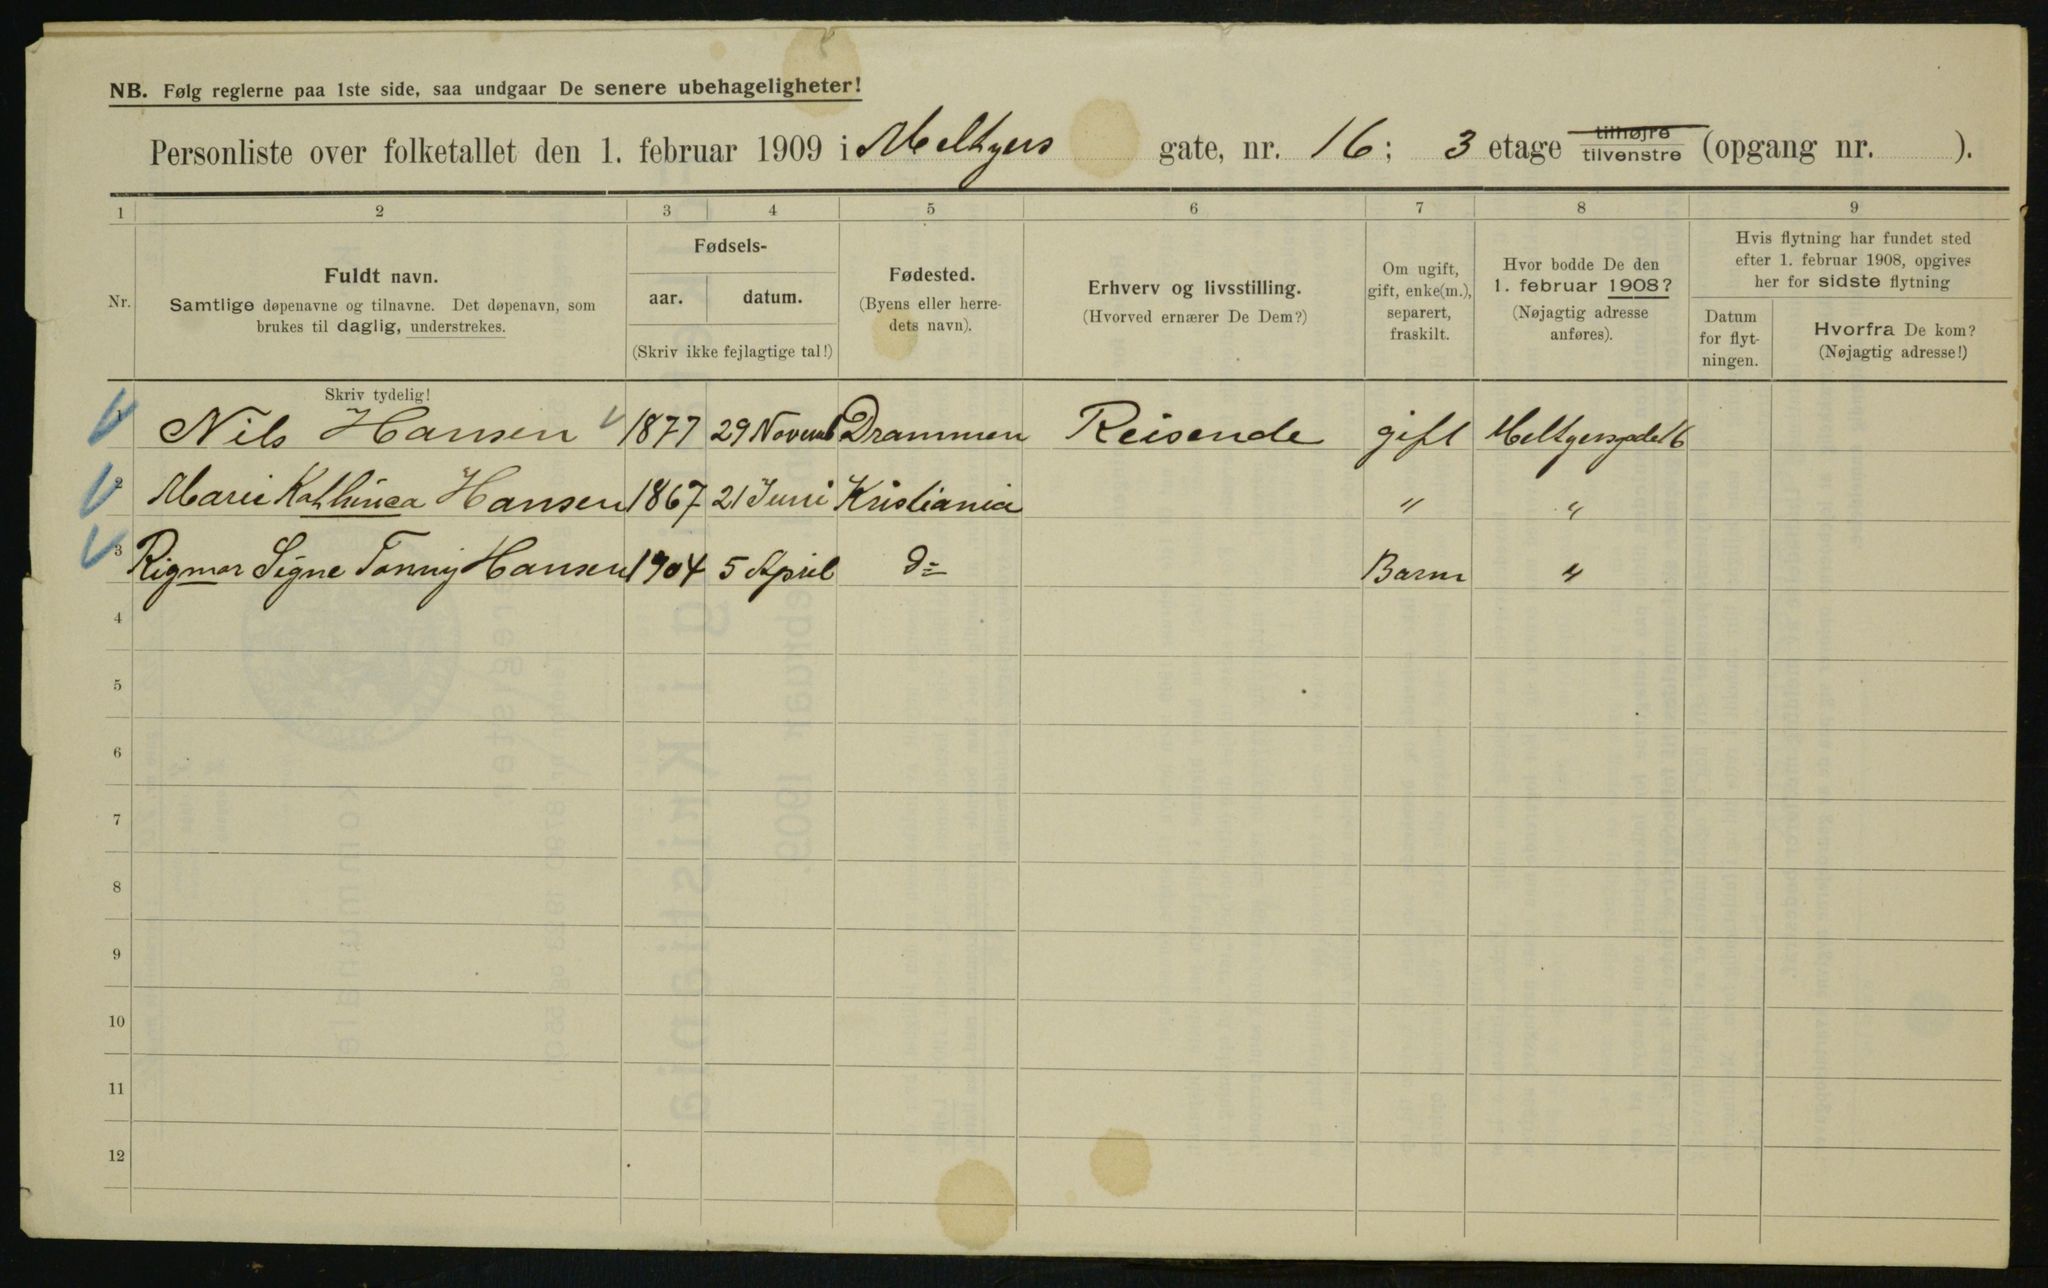 NB. Følg reglerne paa 1ste side, saa undgaar De senere ubehageligheter!
Personliste over folketallet den 1. februar 1909 i Meltzers gate, nr. 16; 3 etage tilhøjre tilvenstre (opgang nr. ).
1 2 3 4 5 6 7 8 9
Nr.
Fuldt navn.
Samtlige døpenavne og tilnavne. Det døpenavn, som
brukes til daglig, understrekes.
Fødsels-
aar. datum.
(Skriv ikke fejlagtige tal!)
Fødested.
(Byens eller herre-
dets navn).
Erhverv og livsstilling.
(Hvorved ernærer De Dem?)
Om ugift,
gift, enke(m.),
separert,
fraskilt.
Hvor bodde De den
1. februar 1908?
(Nøjagtig adresse
anføres).
Hvis flytning har fundet sted
efter 1. februar 1908, opgives
her for sidste flytning
Datum
for flyt-
ningen.
Hvorfra De kom?
(Nøjagtig adresse!)
Skriv tydelig!
1 Nils Hansen 1877 29 Novemb Drammen Reisende gift Meltzersgade 16
2 Marie Kathinca Hansen 1867 21 Juni Kristiania " "
3 Rigmor Signe Tonny Hansen 1904 5 April do Barn "
4
5
6
7
8
9
10
11
12